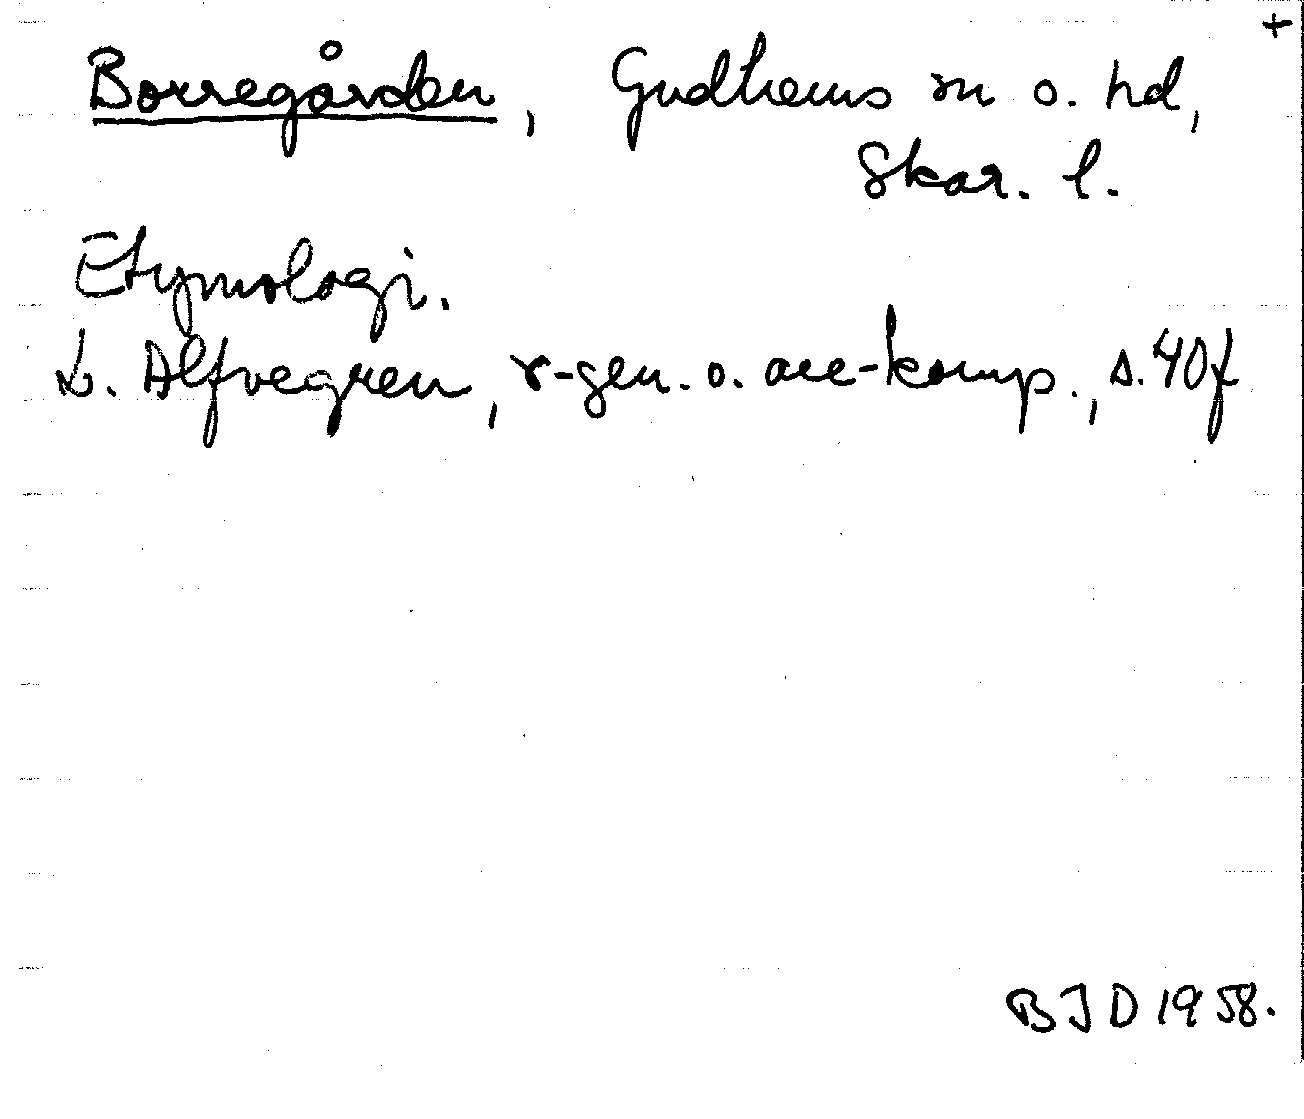 +
Borregården, Gudhems sn o. hd,
Skar. l.
Etymologi.
L. Alfvegren, r-gen. o. are-komp., s. 40f
BJD 1958.